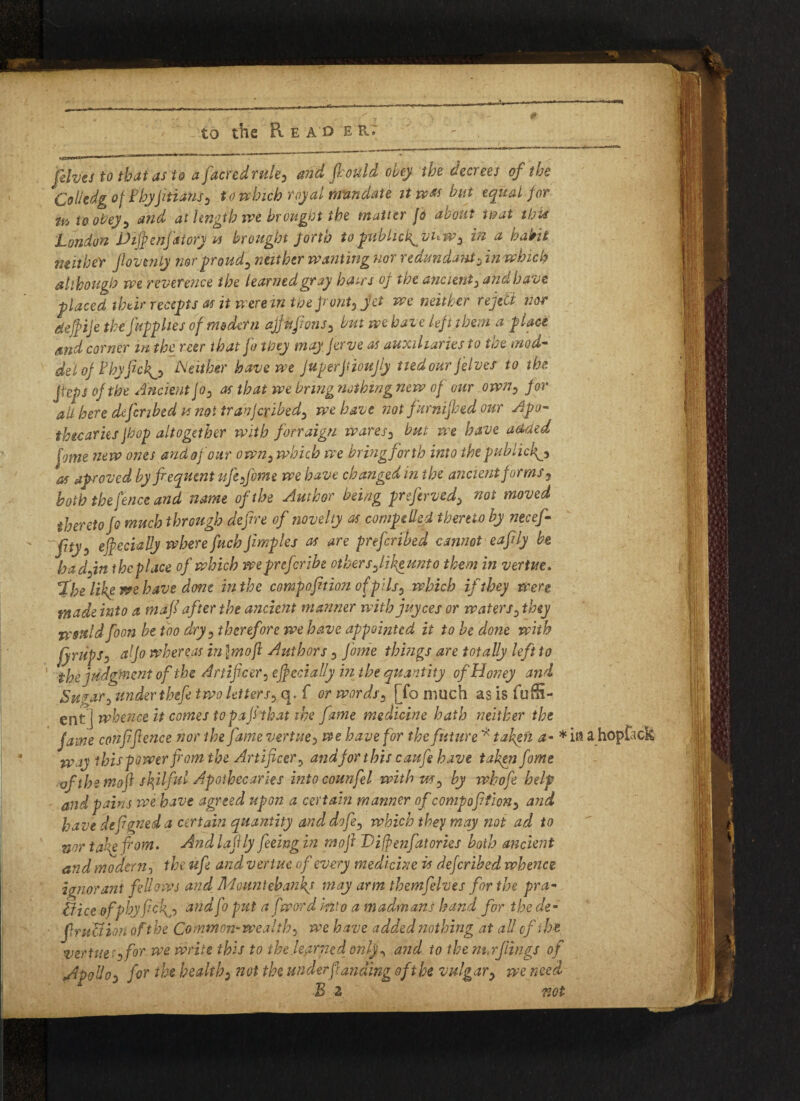 to the READER.
ſelves to that as to a ſacred rule, and ſhould obey the decrees of the
Colledg of Phyſitians, to which royal mandate it was but equal for
us to obey, and at length we brought the matter ſo about that this
London Diſpenſatory is brought forth to publick view, in a habit
neither ſlovenly nor proud, neither wanting nor redundant, in which
although we reverence the learned gray hairs of the ancient, and have
placed their recepts as it were in the front, yet we neither reject nor
deſpiſe the ſupplies of modern aſſuſions, but we have left them a place
and corner in the reer that ſo they may ſerve as auxiliaries to the mod-
del of Phyſick, Neither have we ſuperſtiouſly tied our ſelves to the
ſteps of the Ancient ſo, as that we bring nothing new of our own, for
all here deſcribed is not tranſcribed, we have not furniſhed our Apo-
thecaries ſhop altogether with forraign wares, but we have added
ſome new ones and of our own, which we bring forth into the publick,
as aproved by frequent uſe, ſome we have changed in the ancient forms,
both the ſence and name of the Author being preſerved, not moved
thereto ſo much through deſire of novelty as compelled thereto by neceſ-
ſity, eſpecially where ſuch ſimples as are preſcribed cannot eaſily be
had, in the place of which we preſcribe others, like unto them in vertue.
The like we have done in the compoſition of pils, which if they were
made into a maſs after the ancient manner with juyces or waters, they
would ſoon be too dry, therefore we have appointed it to be done with
ſyrups, alſo whereas in moſt Authors, ſome things are totally left to
the judgment of the Artificer, eſpecially in the quantity of Honey and
Sugar, under theſe two letters, q. ſ or words, [ſo much as is ſuffi-
ent] whence it comes to paſs that the ſame medicine hath neither the
ſame conſiſtence nor the ſame vertue, we have for the future * taken a- * in a hopſack
way this power from the Artificer, and for this cauſe have taken ſome
of the moſt skilful Apothecaries into counſel with us, by whoſe help
and pains we have agreed upon a certain manner of compoſition, and
have deſigned a certain quantity and doſe, which they may not ad to
nor take from. And laſtly ſeeing in moſt Diſpenſatories both ancient
and modern, the uſe and vertue of every medicine is deſcribed whence
ignorant fellows and Mountebanks may arm themſelves for the pra-
ctice of phyſick, and ſo put a ſword into a madmans hand for the de-
ſtruction of the Common-wealth, we have added nothing at all of the
vertues, for we write this to the learned only, and to the nurſlings of
Apollo, for the health, not the underſtanding of the vulgar, we need
B 2 not